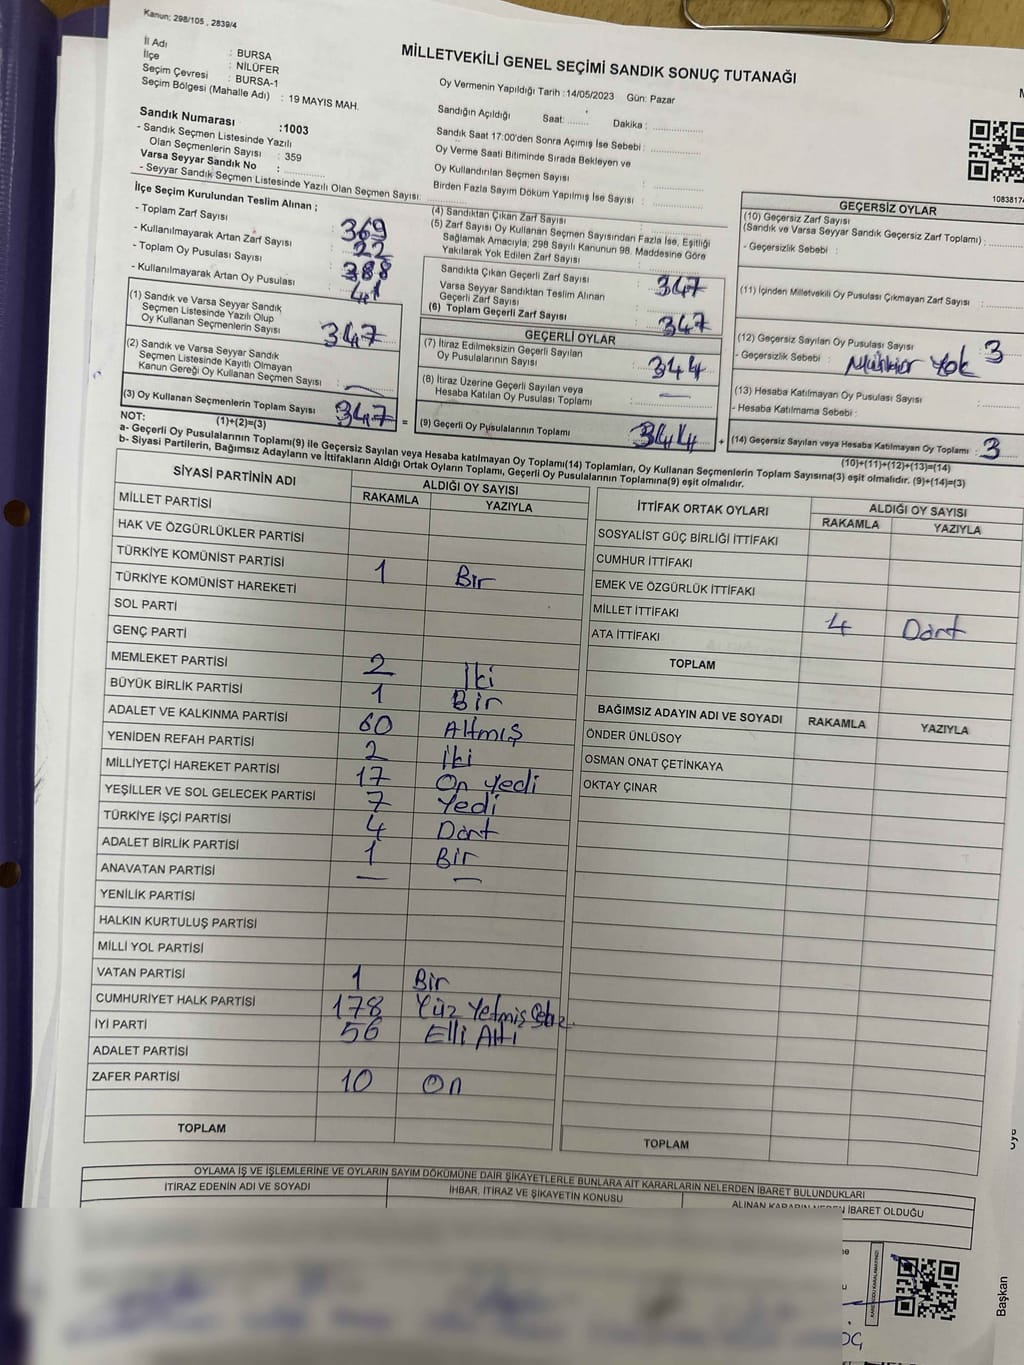 Kanun; 298/105 , 2839/4
MİLLETVEKİLİ GENEL SEÇİMİ SANDIK SONUÇ TUTANAĞI
İl Adı : BURSA
İlçe : NİLÜFER
Seçim Çevresi : BURSA-1
Seçim Bölgesi (Mahalle Adı) : 19 MAYIS MAH.
Sandık Numarası :1003
- Sandık Seçmen Listesinde Yazılı
Olan Seçmenlerin Sayısı : 359
Varsa Seyyar Sandık No :
- Seyyar Sandık Seçmen Listesinde Yazılı Olan Seçmen Sayısı:
Oy Vermenin Yapıldığı Tarih :14/05/2023 Gün: Pazar
Sandığın Açıldığı Saat: Dakika :
Sandık Saat 17:00'den Sonra Açımış İse Sebebi :
Oy Verme Saati Bitiminde Sırada Bekleyen ve
Oy Kullandırılan Seçmen Sayısı :
Birden Fazla Sayım Döküm Yapılmış İse Sayısı :
İlçe Seçim Kurulundan Teslim Alınan ;
- Toplam Zarf Sayısı : 369
- Kullanılmayarak Artan Zarf Sayısı : 22
- Toplam Oy Pusulası Sayısı : 388
- Kullanılmayarak Artan Oy Pusulası : 41
(1) Sandık ve Varsa Seyyar Sandık
Seçmen Listesinde Yazılı Olup
Oy Kullanan Seçmenlerin Sayısı 347
(2) Sandık ve Varsa Seyyar Sandık
Seçmen Listesinde Kayıtlı Olmayan
Kanun Gereği Oy Kullanan Seçmen Sayısı : —
(3) Oy Kullanan Seçmenlerin Toplam Sayısı 347 =
(1)+(2)=(3)
(4) Sandıktan Çıkan Zarf Sayısı
(5) Zarf Sayısı Oy Kullanan Seçmen Sayısından Fazla İse, Eşitliği
Sağlamak Amacıyla, 298 Sayılı Kanunun 98. Maddesine Göre
Yakılarak Yok Edilen Zarf Sayısı :
Sandıkta Çıkan Geçerli Zarf Sayısı : 347
Varsa Seyyar Sandıktan Teslim Alınan
Geçerli Zarf Sayısı
(6) Toplam Geçerli Zarf Sayısı : 347
GEÇERLİ OYLAR
(7) İtiraz Edilmeksizin Geçerli Sayılan
Oy Pusulalarının Sayısı : 344
(8) İtiraz Üzerine Geçerli Sayılan veya
Hesaba Katılan Oy Pusulası Toplamı : —
(9) Geçerli Oy Pusulalarının Toplamı 344 +
1083817
GEÇERSİZ OYLAR
(10) Geçersiz Zarf Sayısı
(Sandık ve Varsa Seyyar Sandık Geçersiz Zarf Toplamı) :
- Geçersizlik Sebebi :
(11) İçinden Milletvekili Oy Pusulası Çıkmayan Zarf Sayısı :
(12) Geçersiz Sayılan Oy Pusulası Sayısı : 3
- Geçersizlik Sebebi : Mühür Yok
(13) Hesaba Katılmayan Oy Pusulası Sayısı :
- Hesaba Katılmama Sebebi :
(14) Geçersiz Sayılan veya Hesaba Katılmayan Oy Toplamı : 3
(10)+(11)+(12)+(13)=(14)
NOT:
a- Geçerli Oy Pusulalarının Toplamı(9) ile Geçersiz Sayılan veya Hesaba katılmayan Oy Toplamı(14) Toplamları, Oy Kullanan Seçmenlerin Toplam Sayısına(3) eşit olmalıdır. (9)+(14)=(3)
b- Siyasi Partilerin, Bağımsız Adayların ve İttifakların Aldığı Ortak Oyların Toplamı, Geçerli Oy Pusulalarının Toplamına(9) eşit olmalıdır.
SİYASİ PARTİNİN ADI ALDIĞI OY SAYISI
RAKAMLA YAZIYLA
MİLLET PARTİSİ
HAK VE ÖZGÜRLÜKLER PARTİSİ
TÜRKİYE KOMÜNİST PARTİSİ 1 Bir
TÜRKİYE KOMÜNİST HAREKETİ
SOL PARTİ
GENÇ PARTİ
MEMLEKET PARTİSİ 2 İki
BÜYÜK BİRLİK PARTİSİ 1 Bir
ADALET VE KALKINMA PARTİSİ 60 Altmış
YENİDEN REFAH PARTİSİ 2 İki
MİLLİYETÇİ HAREKET PARTİSİ 17 On Yedi
YEŞİLLER VE SOL GELECEK PARTİSİ 7 Yedi
TÜRKİYE İŞÇİ PARTİSİ 4 Dört
ADALET BİRLİK PARTİSİ 1 Bir
ANAVATAN PARTİSİ — —
YENİLİK PARTİSİ
HALKIN KURTULUŞ PARTİSİ
MİLLİ YOL PARTİSİ
VATAN PARTİSİ 1 Bir
CUMHURİYET HALK PARTİSİ 178 Yüz Yetmiş
İYİ PARTİ 56 Elli Altı
ADALET PARTİSİ
ZAFER PARTİSİ 10 On
TOPLAM
İTTİFAK ORTAK OYLARI ALDIĞI OY SAYISI
RAKAMLA YAZIYLA
SOSYALİST GÜÇ BİRLİĞİ İTTİFAKI
CUMHUR İTTİFAKI
EMEK VE ÖZGÜRLÜK İTTİFAKI
MİLLET İTTİFAKI 4 Dört
ATA İTTİFAKI
TOPLAM
BAĞIMSIZ ADAYIN ADI VE SOYADI RAKAMLA YAZIYLA
ÖNDER ÜNLÜSOY
OSMAN ONAT ÇETİNKAYA
OKTAY ÇINAR
TOPLAM
OYLAMA İŞ VE İŞLEMLERİNE VE OYLARIN SAYIM DÖKÜMÜNE DAİR ŞİKAYETLERLE BUNLARA AİT KARARLARIN NELERDEN İBARET BULUNDUKLARI
İTİRAZ EDENİN ADI VE SOYADI İHBAR, İTİRAZ VE ŞİKAYETİN KONUSU ALINAN KARARIN NEDEN İBARET OLDUĞU
KAREKODU KARALAMAYINIZ!
Başkan
Üye